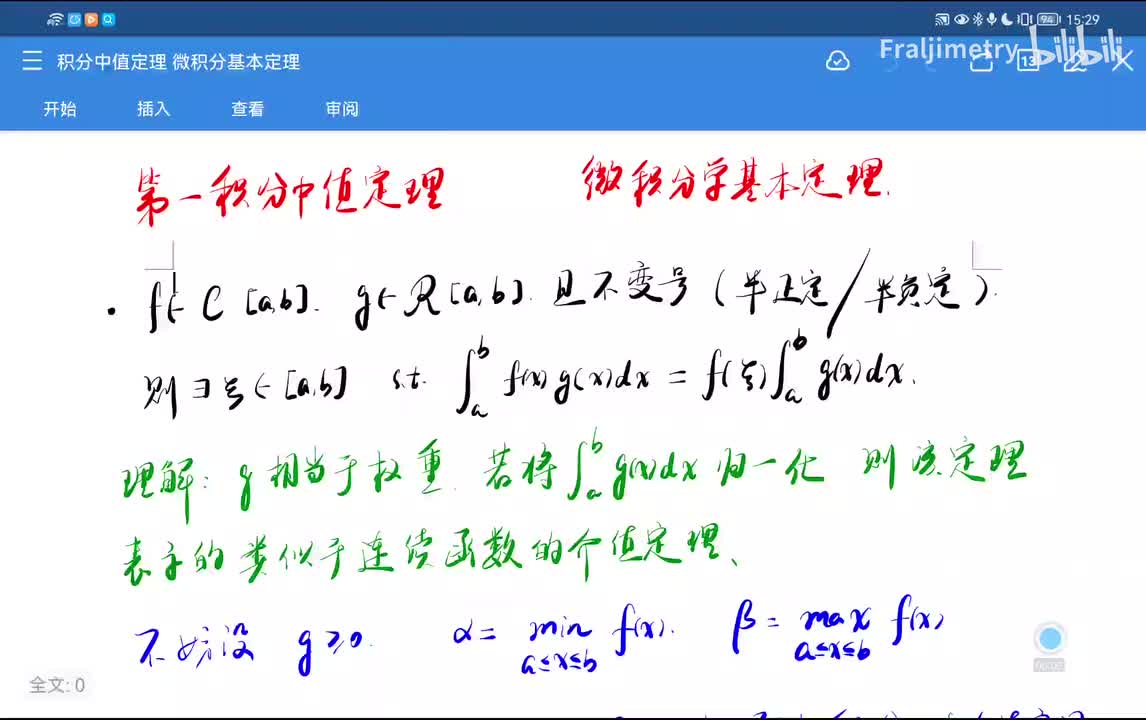 94 15:29
Fraljimetry bilibili
积分中值定理 微积分基本定理
13
开始 插入 查看 审阅
第一积分中值定理 微积分学基本定理.
· f∈C[a,b]. g∈R[a,b]. 且不变号(半正定/半负定).
则∃ξ∈[a,b] s.t. ∫_a^b f(x)g(x)dx = f(ξ)∫_a^b g(x)dx.
理解: g相当于权重. 若将∫_a^b g(x)dx 归一化 则该定理
表示的类似于连续函数的介值定理、
不妨设 g≥0. α= min f(x). β= max f(x)
a≤x≤b a≤x≤b
全文: 0